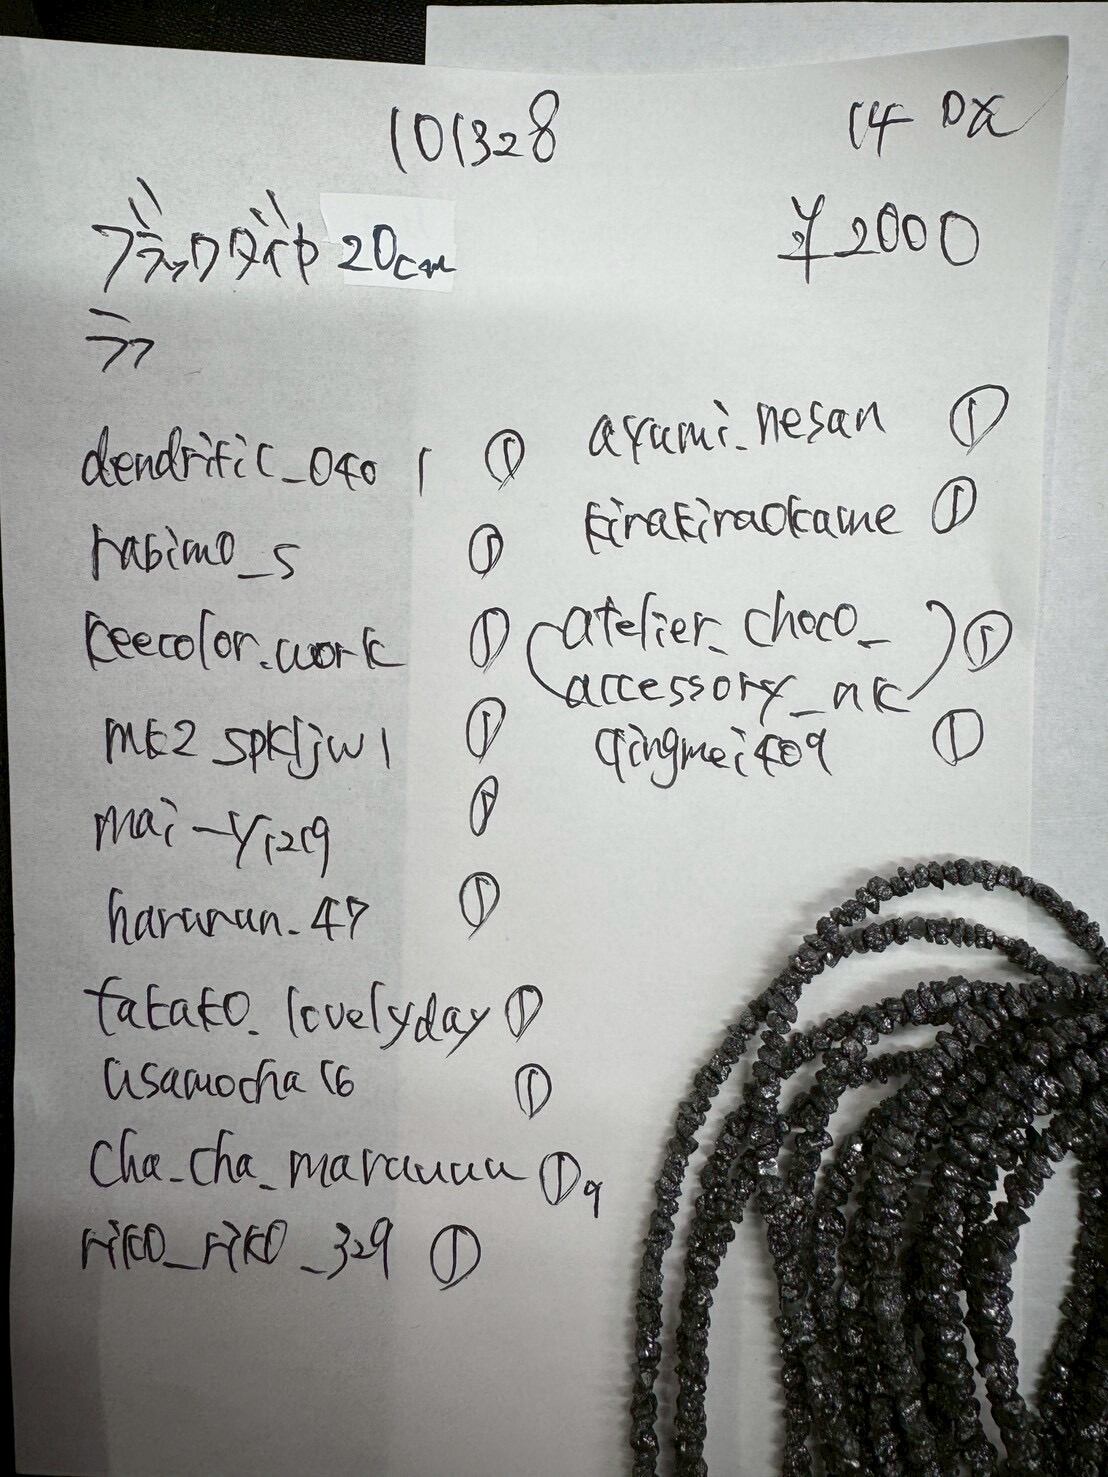 101328
14 DX
ブラックダイヤ 20cm
¥2000
ラフ
dendritic_040 1 ①
rabimo_s ①
keecolor.work ①
mk2_spkljw1 ①
mai-y1219 ①
harurun.47 ①
takako_lovelyday ①
usamocha16 ①
cha_cha_maruuuu ①9
riko_riko_329 ①
ayumi_nesan ①
kirakiraokame ①
(atelier_choco_
accessory_nk) ①
qingmei409 ①